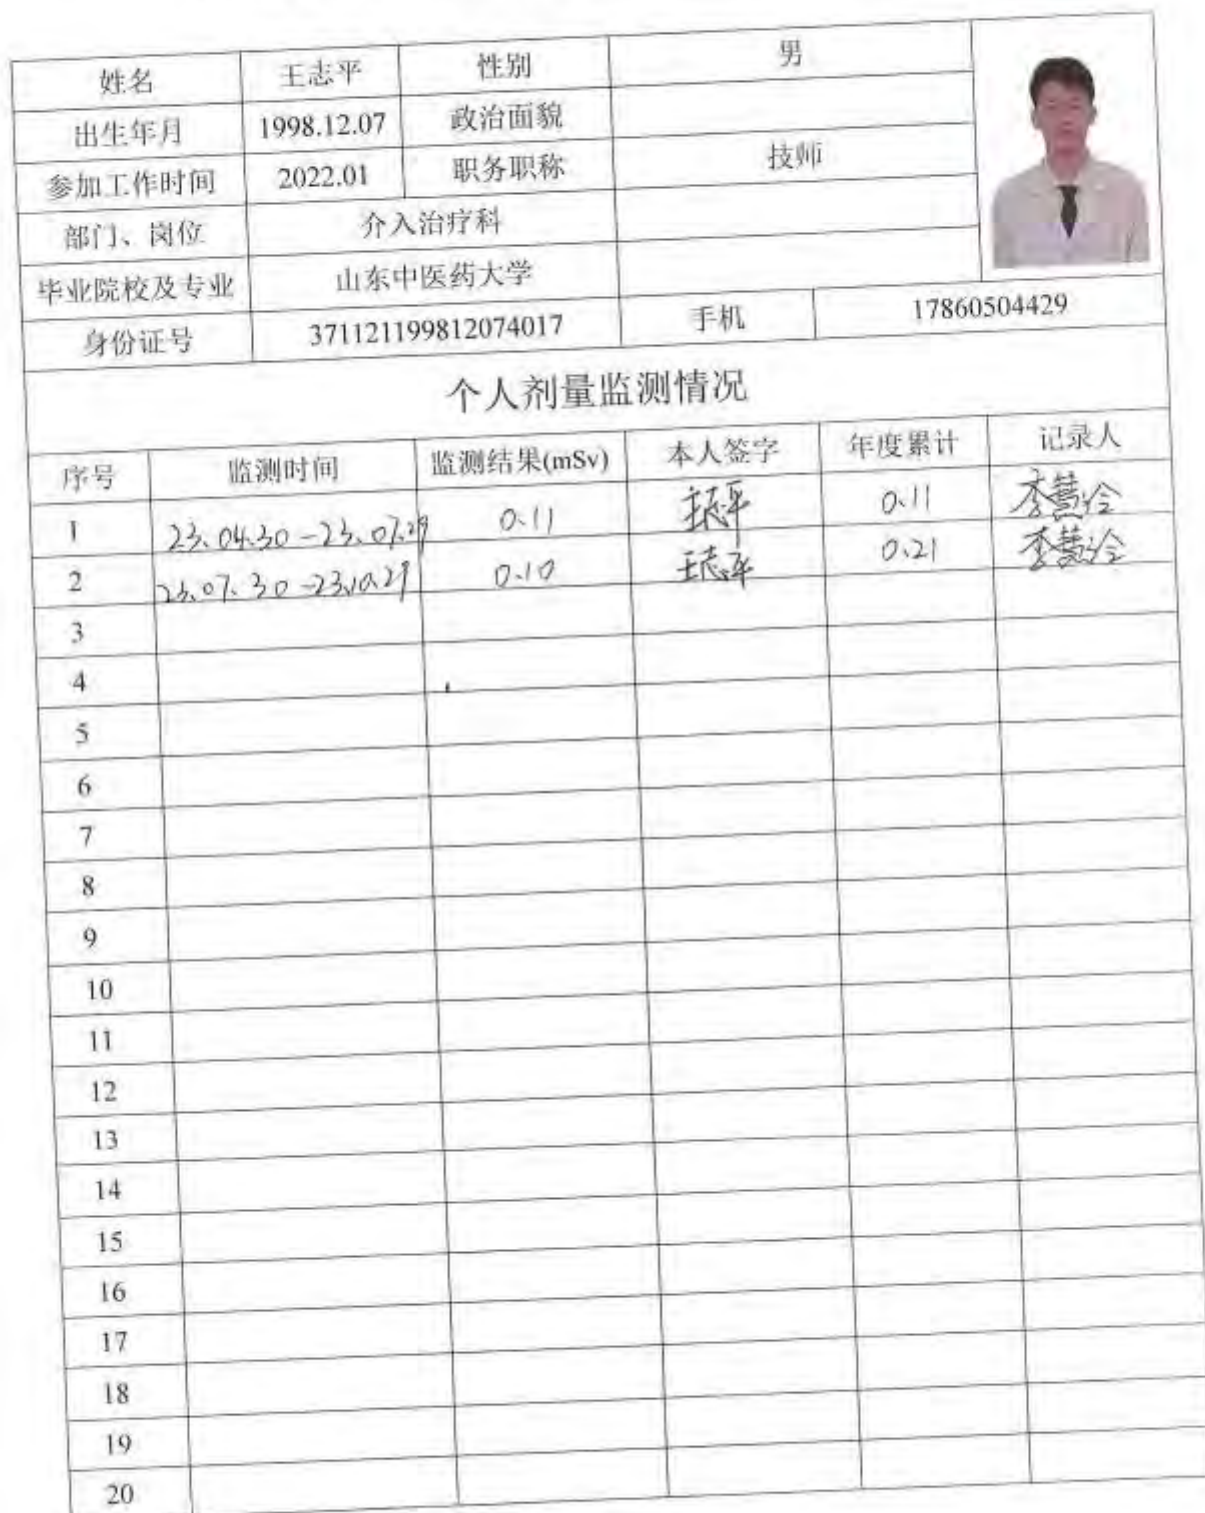 姓名 王志平 性别 男
出生年月 1998.12.07 政治面貌
参加工作时间 2022.01 职务职称 技师
部门、岗位 介入治疗科
毕业院校及专业 山东中医药大学
身份证号 371121199812074017 手机 17860504429
个人剂量监测情况
序号 监测时间 监测结果(mSv) 本人签字 年度累计 记录人
1 23.04.30-23.07.29 0.11 王志平 0.11
2 23.07.30-23.10.29 0.10 王志平 0.21
3
4
5
6
7
8
9
10
11
12
13
14
15
16
17
18
19
20